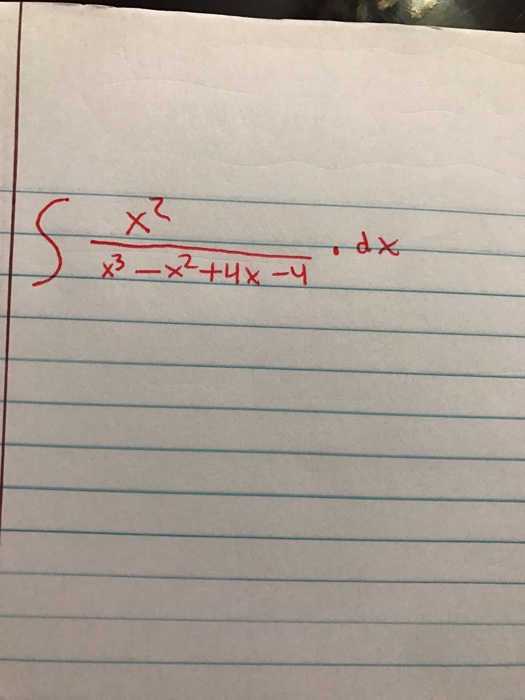 ∫ x² / (x³ - x² + 4x - 4) · dx